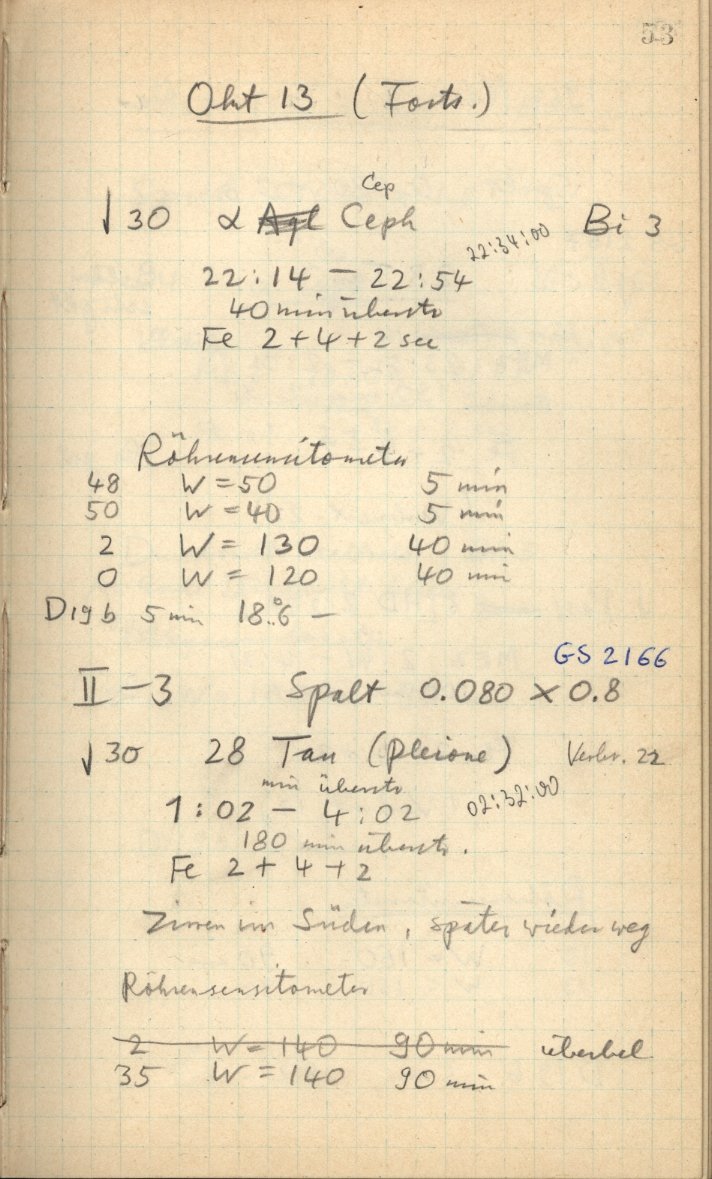 53
Okt 13 (Forts.)
Cep
√30 α Aql Ceph Bi 3
22:34:00
22:14 – 22:54
40 min überstr
Fe 2+4+2 sec
Röhrensensitometer
48 W = 50 5 min
50 W = 40 5 min
2 W = 130 40 min
0 W = 120 40 min
D19b 5 min 18.°6 –
GS 2166
II – 3 Spalt 0.080 × 0.8
√30 28 Tau (Pleione) Verbr. 22
min überstr
1:02 – 4:02 02:32:00
180 min überstr.
Fe 2+4+2
Zirren im Süden, später wieder weg
Röhrensensitometer
2 W = 140 90 min überbel
35 W = 140 90 min